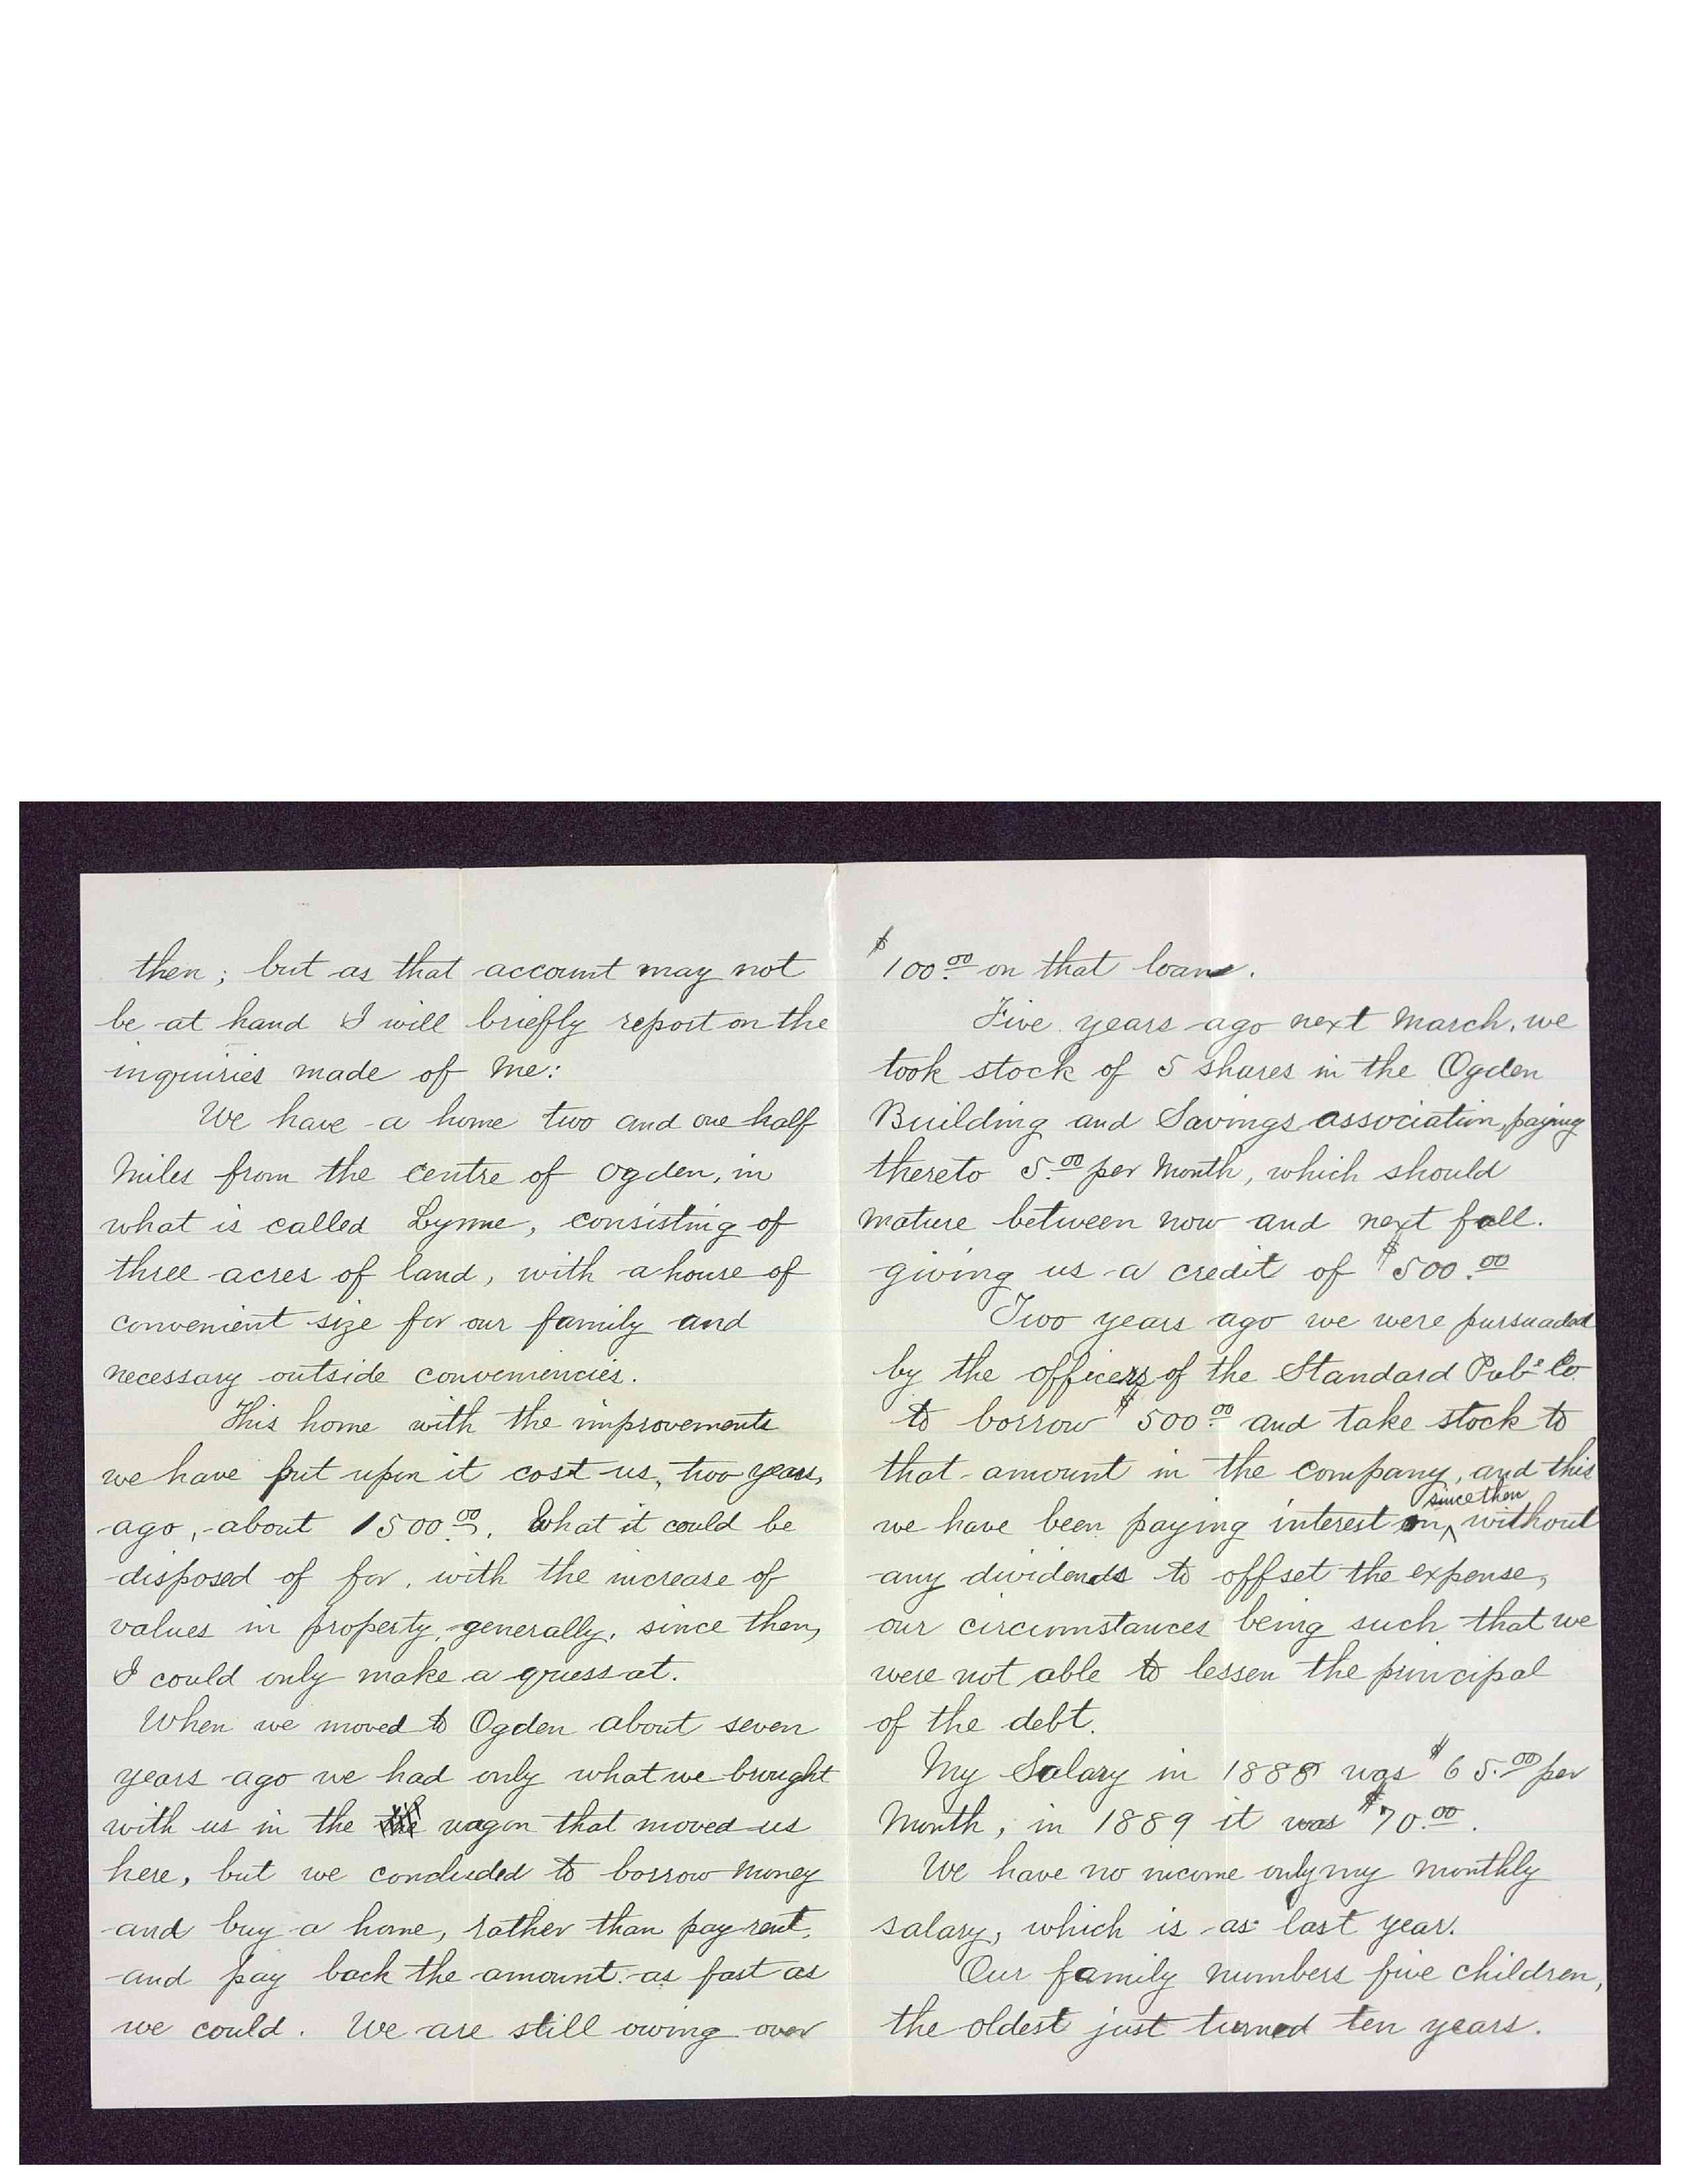 then; but as that account may not
be at hand I will briefly report on the
inquiries made of me:
We have a home two and one half
miles from the centre of Ogden, in
what is called Lynne, consisting of
three acres of land, with a house of
convenient size for our family and
necessary outside conveniencies.
This home with the improvements
we have put upon it cost us, two years,
ago, about 1500.00. What it could be
disposed of for, with the increase of
values in property, generally, since then,
I could only make a guess at.
When we moved to Ogden about seven
years ago we had only what we brought
with us in the the wagon that moved us
here, but we concluded to borrow money
and buy a home, rather than pay rent,
and pay back the amount as fast as
we could. We are still owing over
$100.00 on that loan.
Five years ago next March, we
took stock of 5 shares in the Ogden
Building and Savings association, paying
thereto 5.00 per Month, which should
mature between now and next fall.
giving us a credit of $500.00
Two years ago we were pursuaded
by the officers of the Standard Pub.e Co.
to borrow $500.00 and take stock to
that amount in the company, and this
since then
we have been paying interest on, ^ without
any dividends to offset the expense,
our circumstances being such that we
were not able to lessen the principal
of the debt.
My Salary in 1888 was $65.00 per
Month, in 1889 it was $70.00.
We have no income only my monthly
salary, which is as last year.
Our family numbers five children,
the oldest just turned ten years.